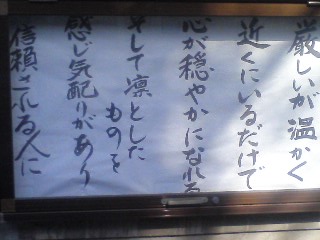 厳しいが温かく
近くにいるだけで
心が穏やかになれる
そして凛とした
ものを
感じ気配りがあり
信頼される人に